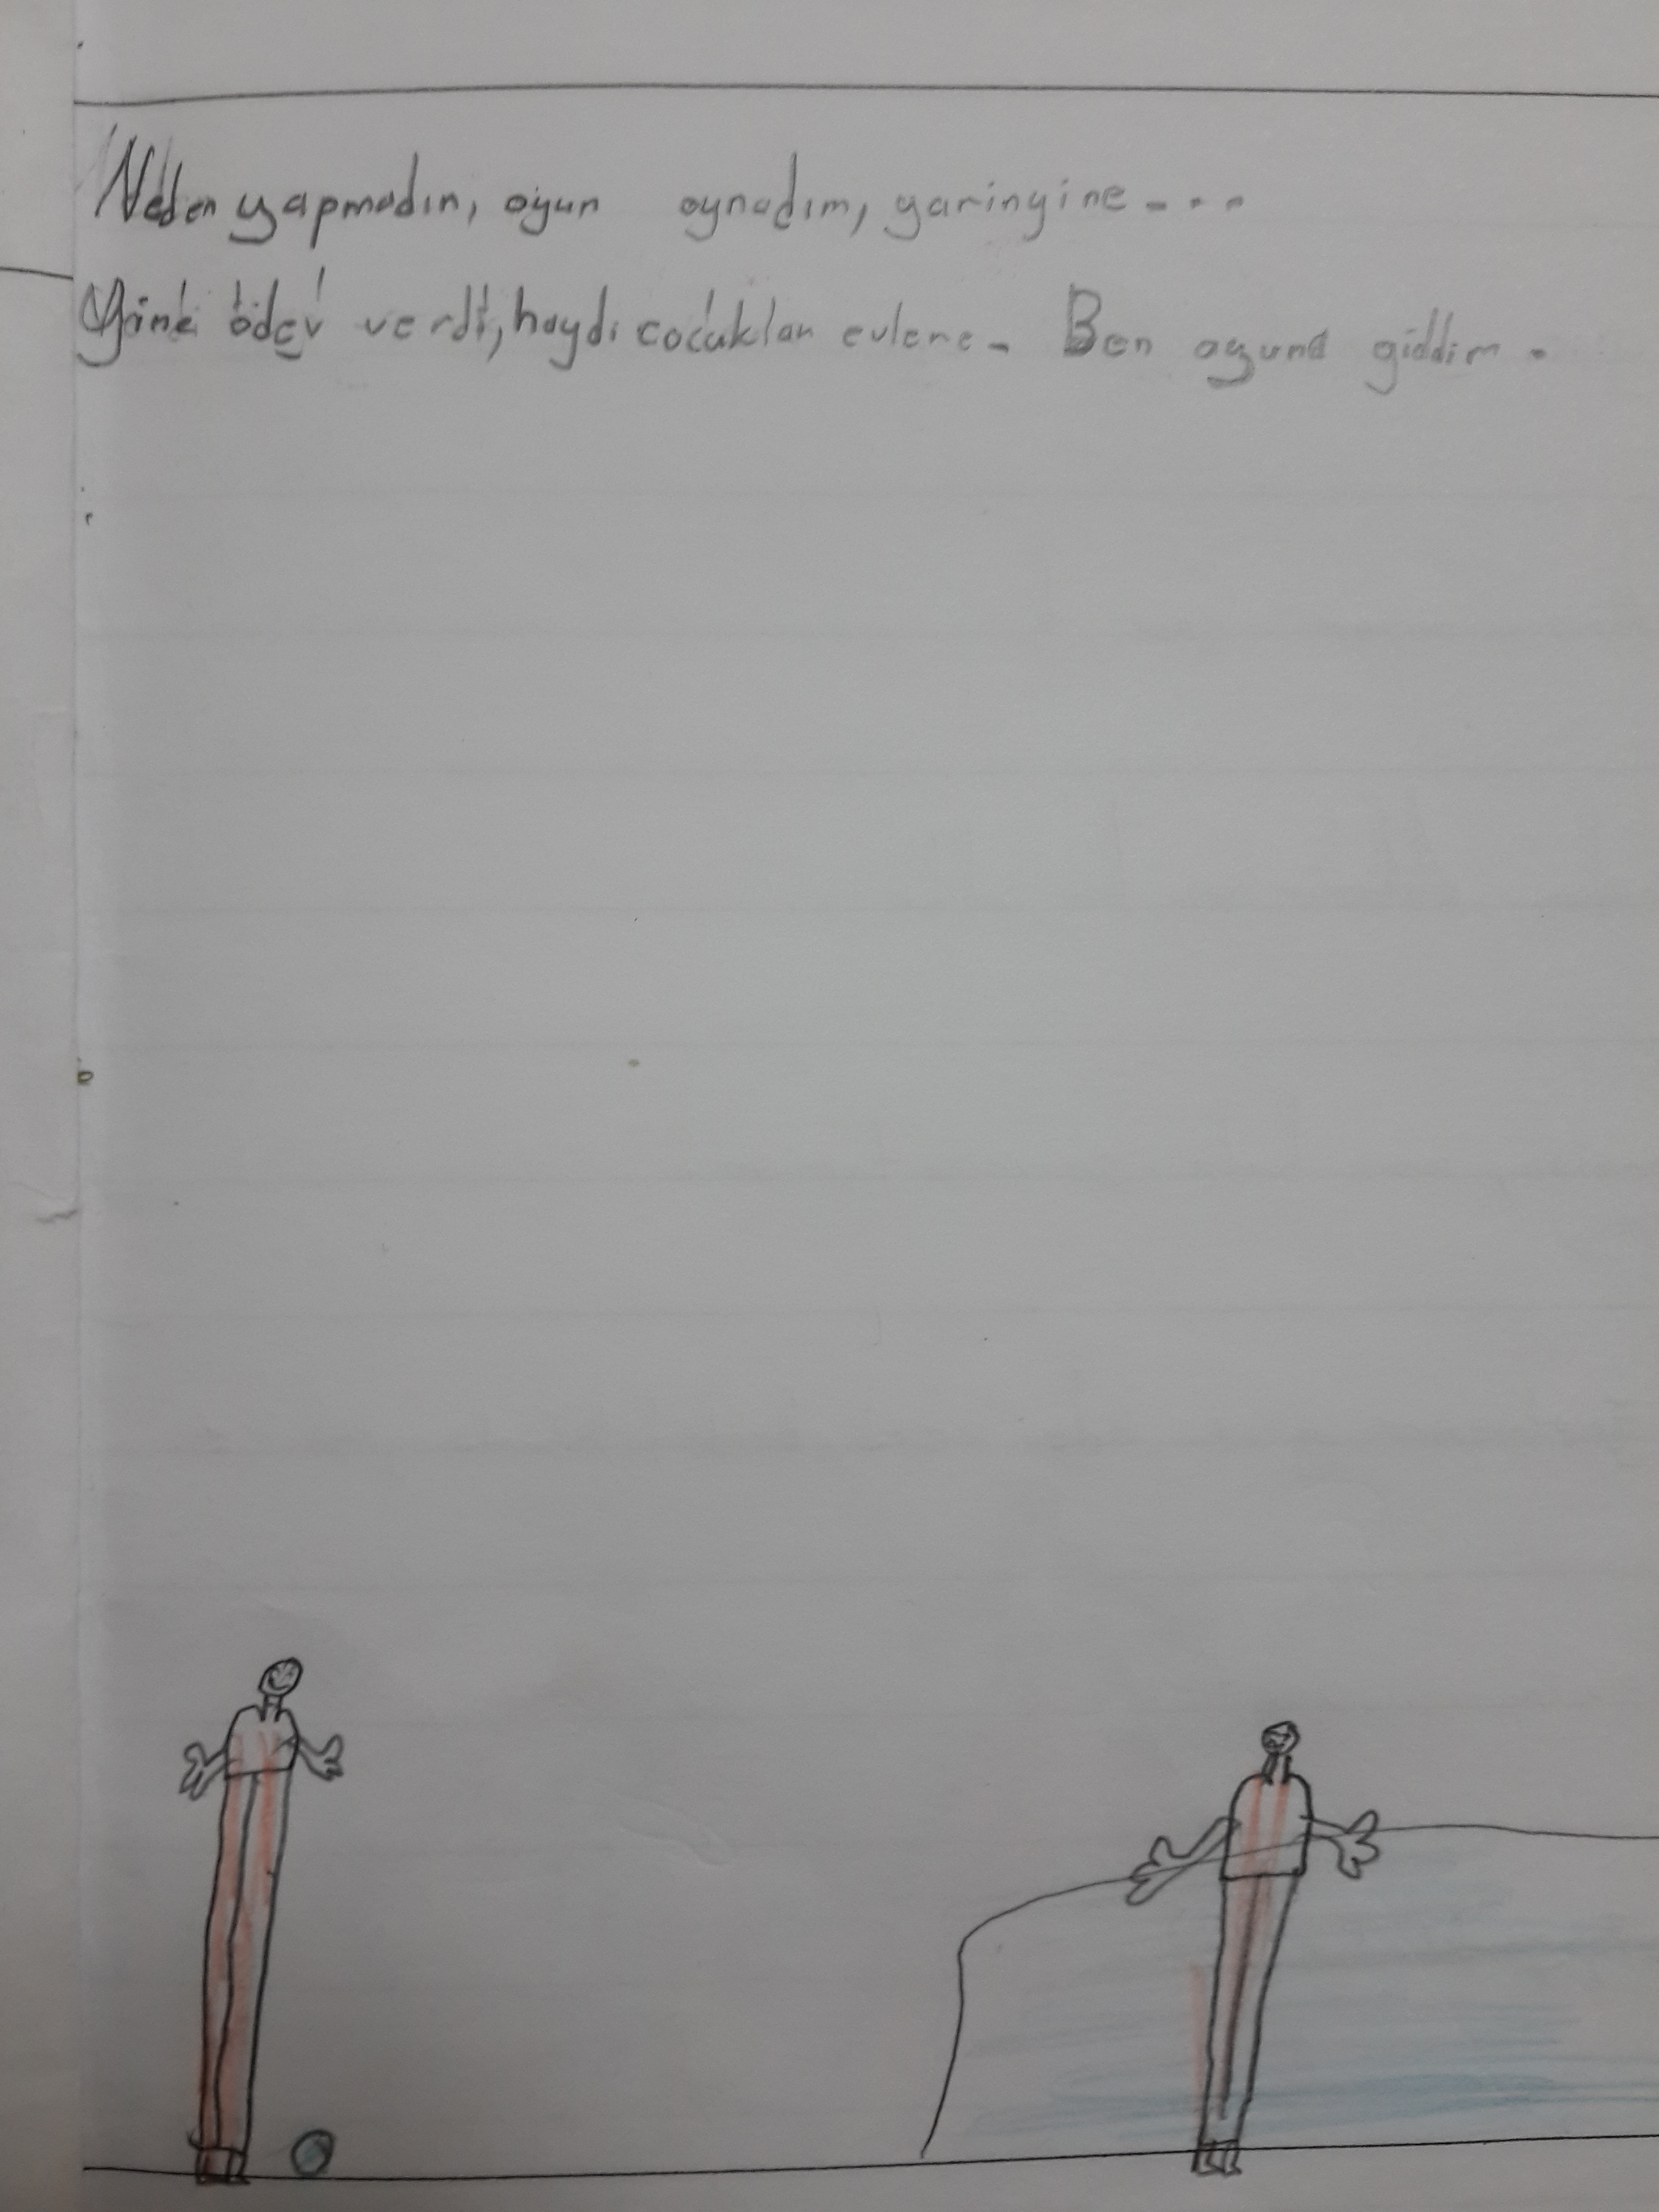 Neden yapmadın, oyun oynadım, yarin yine...
Yine ödev verdi, haydi cocuklar evlere. Ben oyuna giddim.